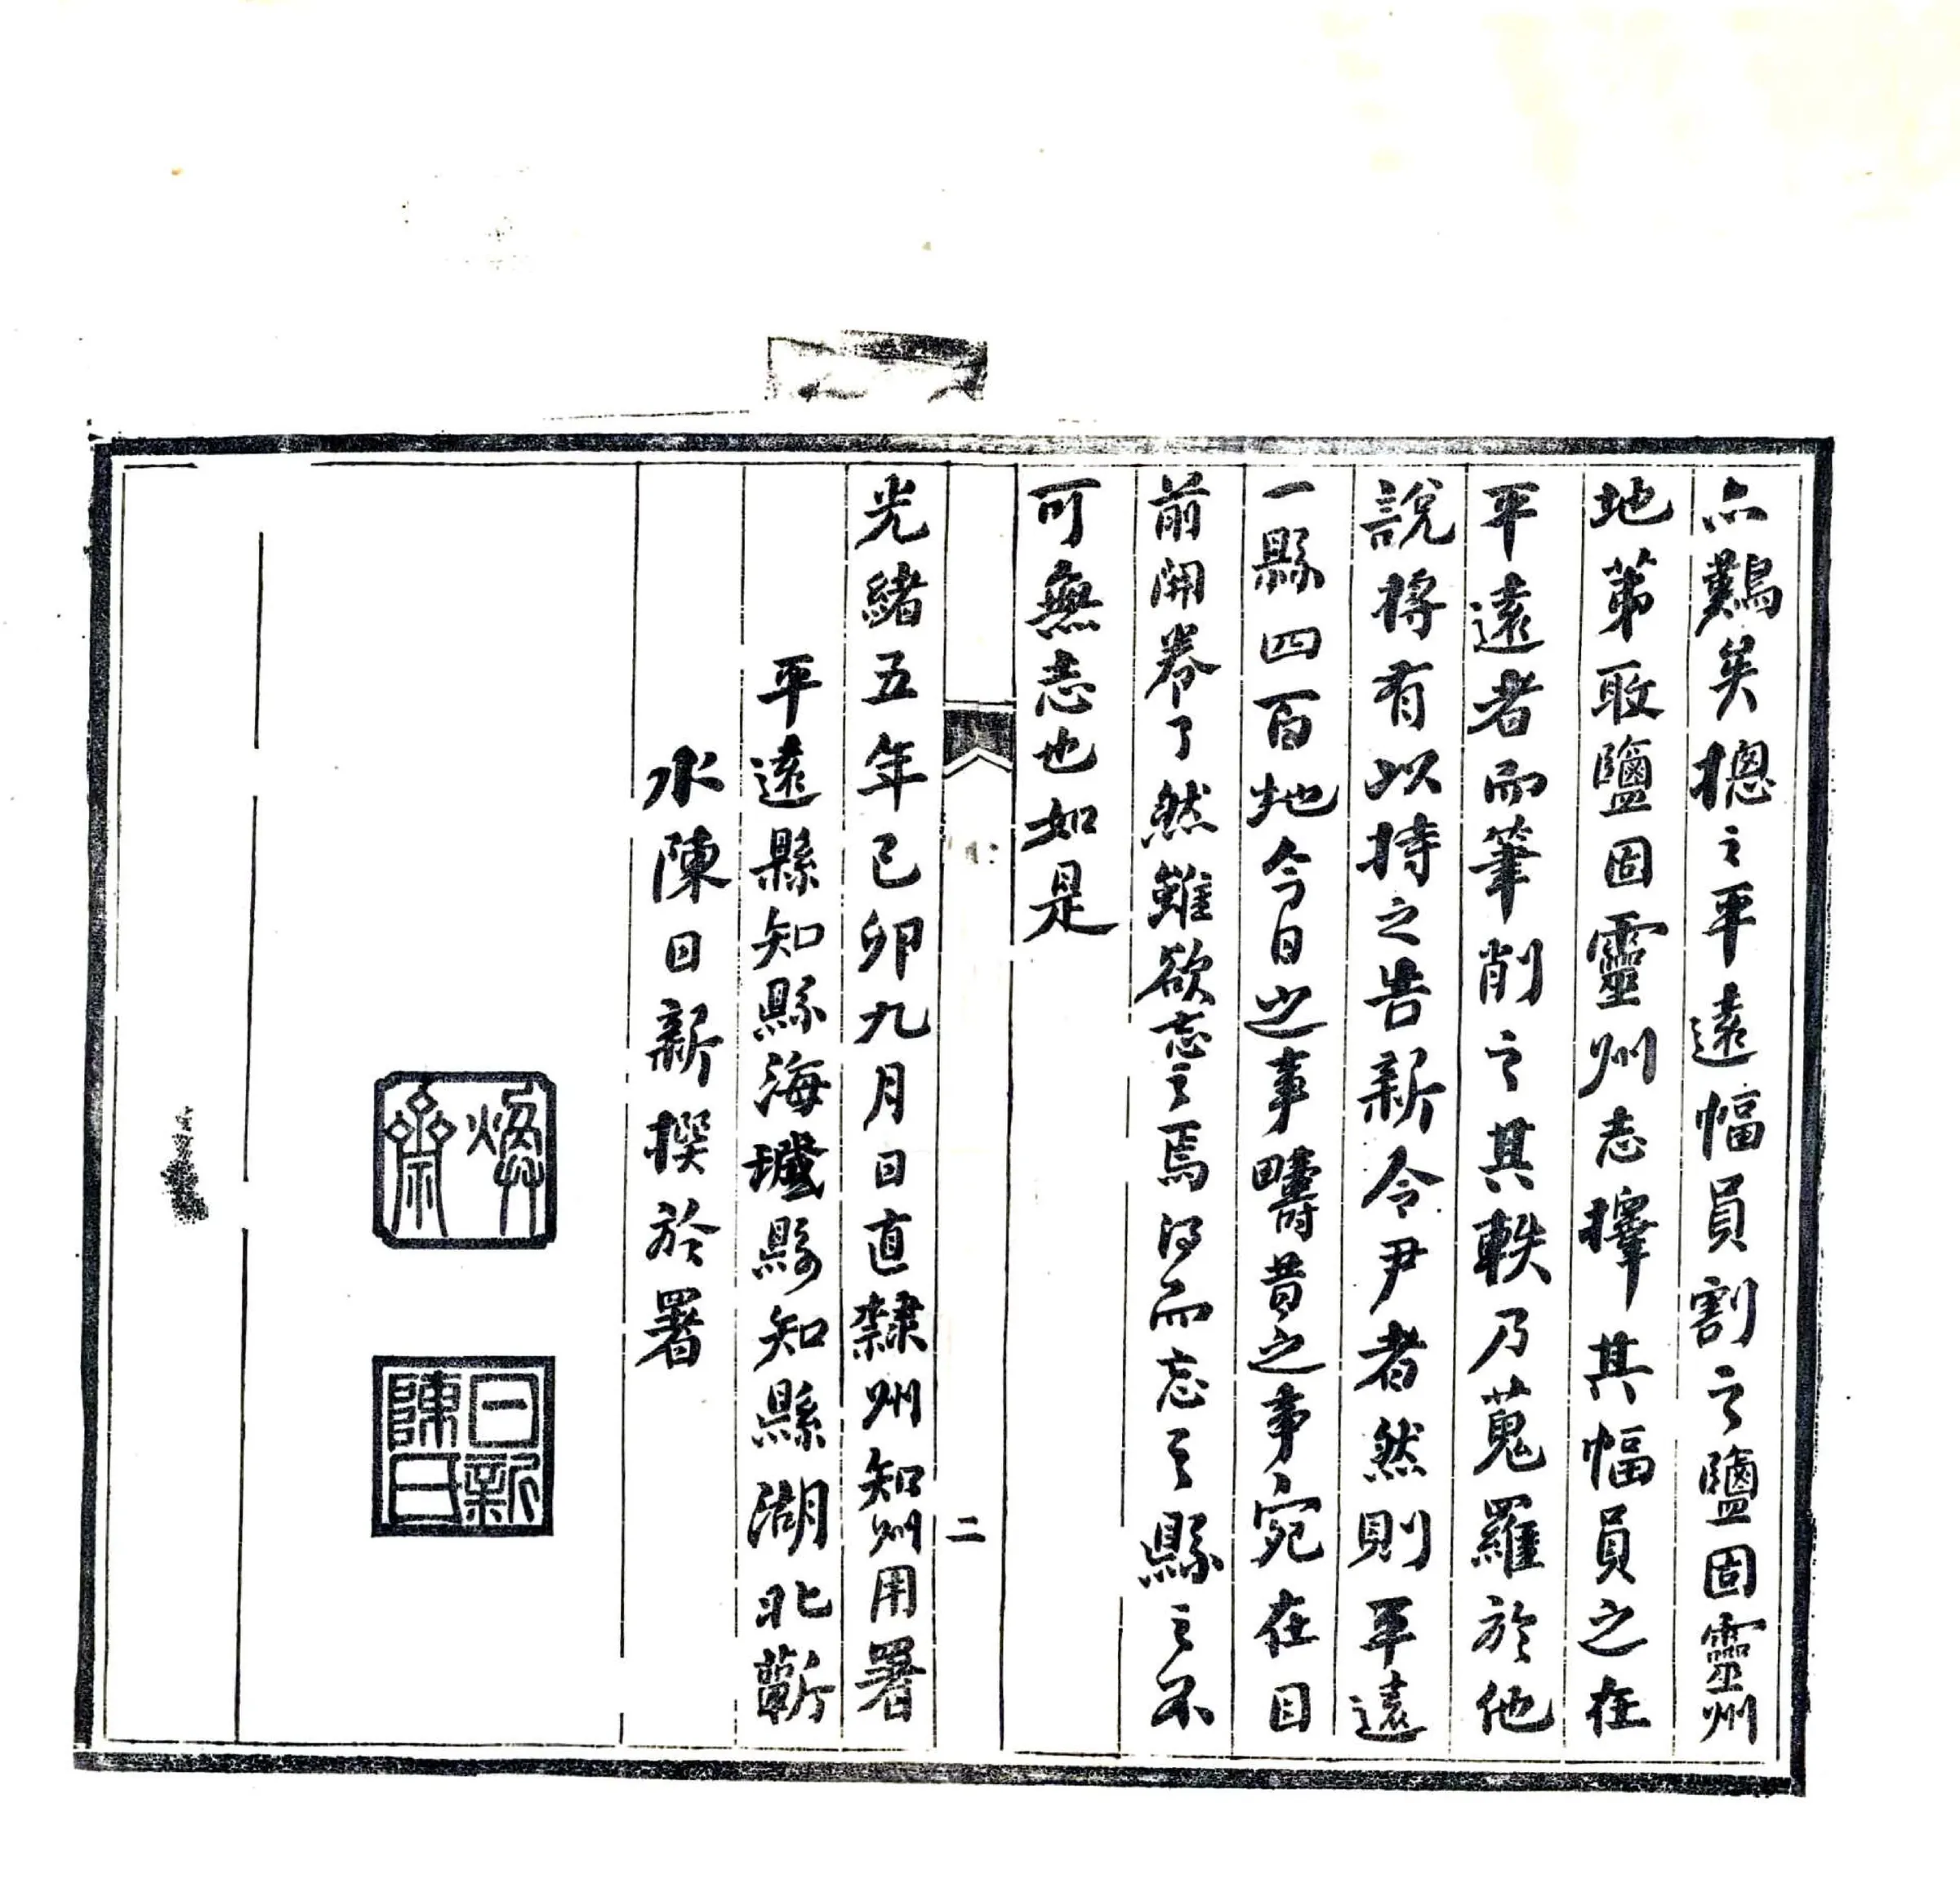 亦難矣摠之平遠幅員割之鹽固靈州
地第取鹽固靈州志擇其幅員之在
平遠者而筆削之其軼乃蒐羅於他
說將有以持之告新令尹者然則平遠
一縣四百地今日之事疇昔之事宛在目
前開卷了然雖欲忘之焉得而忘之縣之不
可無志也如是
二
光緒五年己卯九月日直隸州知州用署
平遠縣知縣海縣知縣湖北蘄
水陳日新撰於署
煥齋
日新陳曰